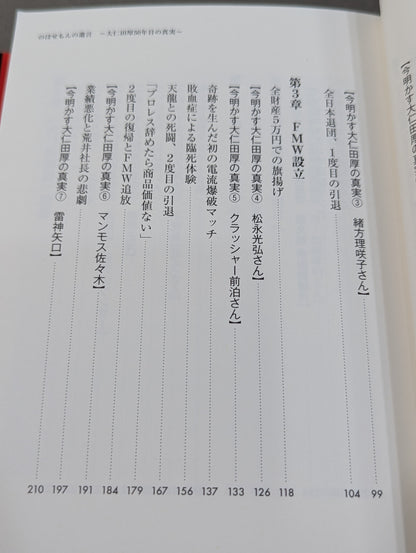 のぼせもんの遺言 ～大仁田厚50年目の真実～
全日本退団、1度目の引退 99
【今明かす大仁田厚の真実③ 緒方理咲子さん】 104
第3章 FMW設立
全財産5万円での旗揚げ 118
【今明かす大仁田厚の真実④ 松永光弘さん】 126
【今明かす大仁田厚の真実⑤ クラッシャー前泊さん】 133
奇跡を生んだ初の電流爆破マッチ 137
敗血症による臨死体験 156
天龍との死闘、2度目の引退 167
「プロレス辞めたら商品価値ない」 179
2度目の復帰とFMW追放 184
【今明かす大仁田厚の真実⑥ マンモス佐々木】 191
業績悪化と荒井社長の悲劇 197
【今明かす大仁田厚の真実⑦ 雷神矢口】 210